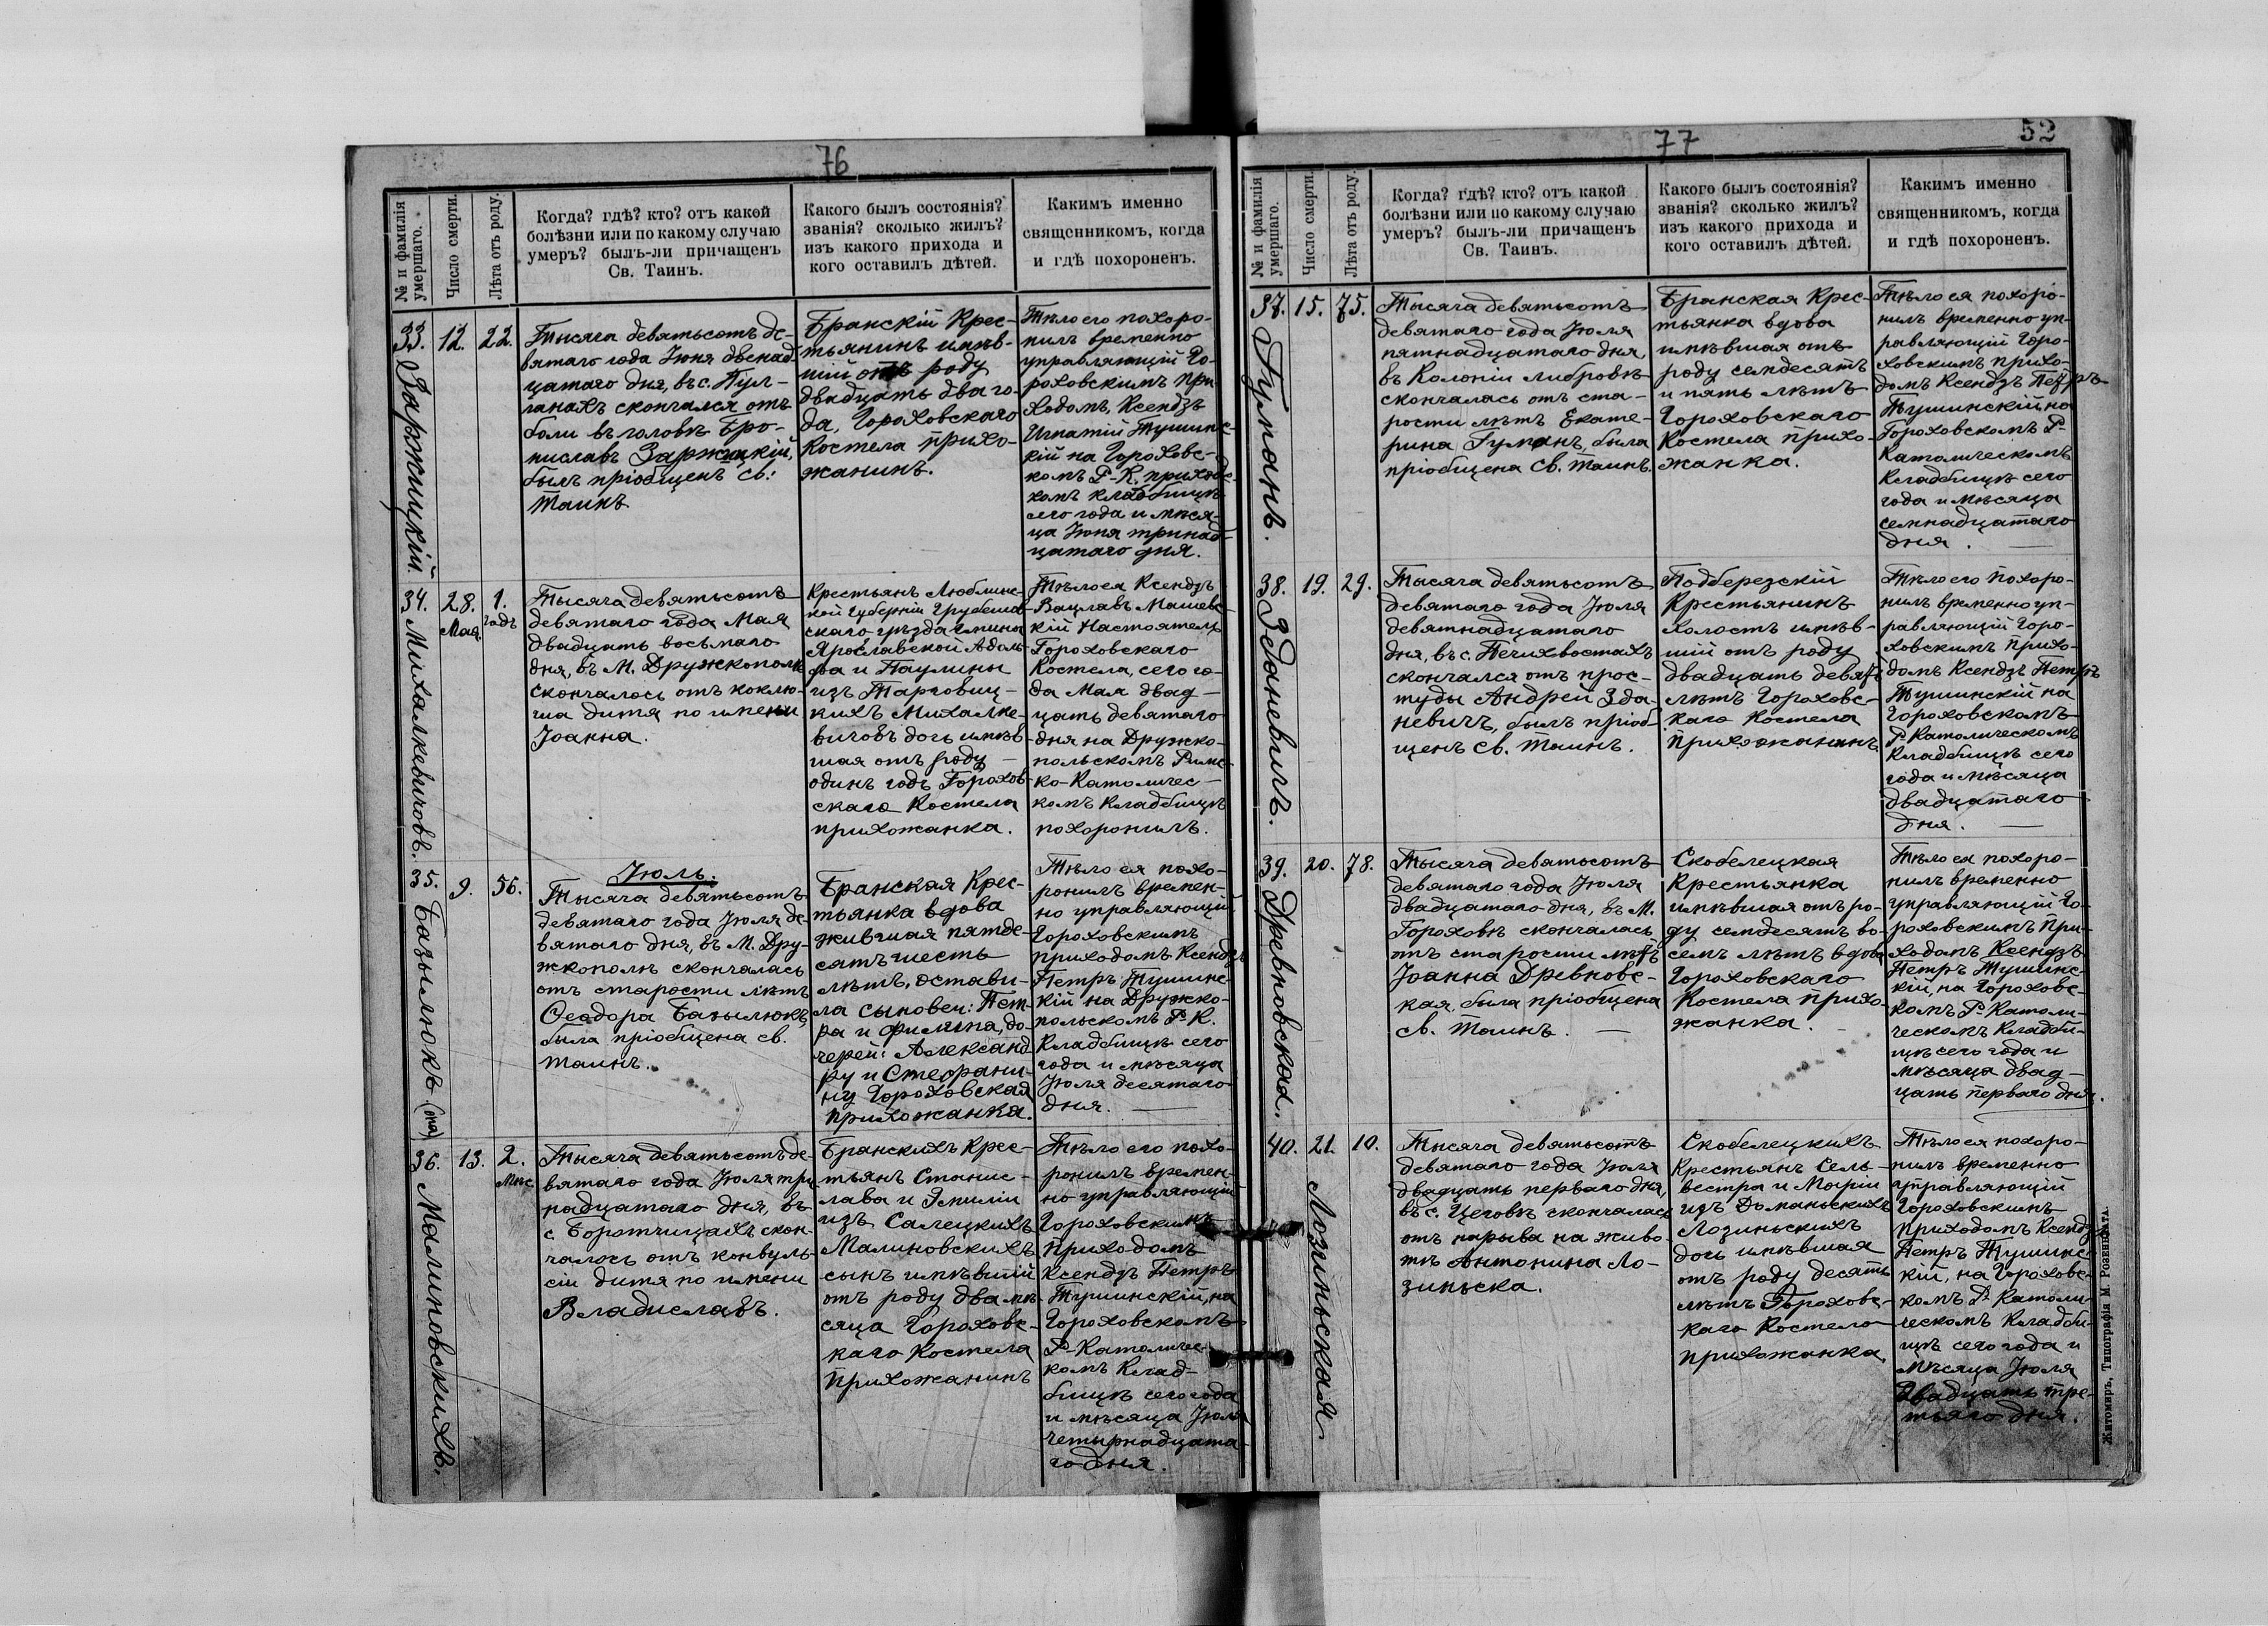 76
№ и фамилія
умершаго.
Число смерти.
Лѣта отъ роду.
Когда? гдѣ? кто? отъ какой
болѣзни или по какому случаю
умеръ? былъ-ли причащенъ
Св. Таинъ.
Какого былъ состоянія?
званія? сколько жилъ?
изъ какого прихода и
кого оставилъ дѣтей.
Какимъ именно
священникомъ, когда
и гдѣ похороненъ.
33. Заржицкій.
12.
22.
Тысяча девятьсотъ де-
вятаго года Іюня двенад-
цатаго дня, въ с. Пул-
ганахъ скончался отъ
боли въ головѣ Бро-
ниславъ Заржицкій,
былъ пріобщенъ св:
Таинъ.
Бранскій Крес-
тьянинъ имѣв-
шій отъ роду
двадцать два го-
да, Гороховскаго
Костела прихо-
жанинъ.
Тѣло его похоро-
нилъ временно
управляющій Го-
роховскимъ при-
ходомъ, Ксендзъ
Игнатій Тушинс-
кій на Гороховс-
комъ Р-К. приходс-
комъ кладбищѣ
сего года и мѣся-
ца Іюня тринад-
цатаго дня.
34. Михалкевичовъ.
28.
Мая
1.
годъ
Тысяча девятьсотъ
девятаго года Мая
двадцать восьмаго
дня, въ М. Дружкополѣ
скончалось отъ коклю-
ша дитя по имени
Іоанна.
Крестьянъ Люблинс-
кой Губерніи Грубешов-
скаго уѣзда гмина
Ярославской Адоль-
фа и Паулины
изъ Тарговиц-
кихъ Михалке-
вичовъ дочь имѣв-
шая отъ роду
одинъ годъ Горохов-
скаго Костела
прихожанка.
Тѣло ея Ксендзъ
Вацлавъ Машевс-
кій Настоятель
Гороховскаго
Костела, сего го-
да Мая двад-
цать девятаго
дня на Дружко-
польскомъ Римс-
ко-Католичес-
комъ кладбищѣ
похоронилъ.
35. Базылюкъ (ова)
9.
56.
Іюль.
Тысяча девятьсотъ
девятаго года Іюля де-
вятаго дня, въ М. Дру-
жкополѣ скончалась
отъ старости лѣтъ
Ѳеодора Базылюкъ,
была пріобщена св.
Таинъ.
Бранская Крес-
тьянка вдова
жившая пятде-
сятъ шесть
лѣтъ, остави-
ла сыновей: Пет-
ра и Филипа, до-
черей: Александ-
ру и Стефани-
ну Гороховская
прихожанка.
Тѣло ея похо-
ронилъ времен-
но управляющій
Гороховскимъ
приходомъ Ксендзъ
Петръ Тушинс-
кій на Дружко-
польскомъ Р-К.
Кладбищѣ сего
года и мѣсяца
Іюля десятаго
дня.
36. Малиновскихъ.
13.
2.
Мѣс.
Тысяча девятьсотъ де-
вятаго года Іюля три-
надцатаго дня, въ
с. Боротчицахъ скон-
чалось отъ конвуль-
сіи дитя по имени
Владиславъ.
Бранскихъ Крес-
тьянъ Станис-
лава и Эмиліи
изъ Салецкихъ
Малиновскихъ
сынъ имѣвшій
отъ роду два мѣ-
сяца Гороховс-
каго Костела
прихожанинъ
Тѣло его похо-
ронилъ времен-
но управляющій
Гороховскимъ
приходомъ
Ксендзъ Петръ
Тушинскій, на
Гороховскомъ
Р-Католичес-
комъ Клад-
бищѣ сего года
и мѣсяца Іюля
четырнадцата-
го дня.
77
52
№ и фамилія
умершаго.
Число смерти.
Лѣта отъ роду.
Когда? гдѣ? кто? отъ какой
болѣзни или по какому случаю
умеръ? былъ-ли причащенъ
Св. Таинъ.
Какого былъ состоянія?
званія? сколько жилъ?
изъ какого прихода и
кого оставилъ дѣтей.
Какимъ именно
священникомъ, когда
и гдѣ похороненъ.
37. Гуманъ.
15.
75.
Тысяча девятьсотъ
девятаго года Іюля
пятнадцатаго дня,
въ Колоніи Либровкѣ
скончалась отъ ста-
рости лѣтъ Екате-
рина Гуманъ, была
пріобщена Св. Таинъ.
Бранская Крес-
тьянка вдова
имѣвшая отъ
роду семдесятъ
и пять лѣтъ
Гороховскаго
Костела прихо-
жанка.
Тѣло ея похоро-
нилъ временно уп-
равляющій Горо-
ховскимъ прихо-
домъ Ксендзъ Петръ
Тушинскій, на
Гороховскомъ Р-
Католическомъ
Кладбищѣ сего
года и мѣсяца
семнадцатаго
дня.
38. Зданевичъ.
19.
29.
Тысяча девятьсотъ
девятаго года Іюля
девятнадцатаго
дня, въ с. Печихвостахъ
скончался отъ прос-
туды Андрей Зда-
невичъ, былъ пріоб-
щенъ Св. Таинъ.
Подберезскій
Крестьянинъ
холостъ имѣв-
шій отъ роду
двадцать девять
лѣтъ Гороховс-
каго Костела
прихожанинъ.
Тѣло его похоро-
нилъ временно уп-
равляющій Горо-
ховскимъ прихо-
домъ Ксендзъ Петръ
Тушинскій на
Гороховскомъ
Р-Католическомъ
Кладбищѣ сего
года и мѣсяца
двадцатаго
дня.
39. Древновская.
20.
78.
Тысяча девятьсотъ
девятаго года Іюля
двадцатаго дня, въ М.
Гороховѣ скончалась
отъ старости лѣтъ
Іоанна Древновс-
кая, была пріобщена
св. Таинъ.
Скобелецкая
Крестьянка
имѣвшая отъ ро-
ду семдесятъ во-
семъ лѣтъ вдова
Гороховскаго
Костела прихо-
жанка.
Тѣло ея похоро-
нилъ временно
управляющій Го-
роховскимъ При-
ходомъ Ксендзъ
Петръ Тушинс-
кій, на Гороховс-
комъ Р-Католи-
ческомъ Кладби-
щѣ сего года и
мѣсяца двад-
цать перваго дня.
40. Лозиньская.
21.
10.
Тысяча девятьсотъ
девятаго года Іюля
двадцать перваго дня,
въ с. Цеговѣ скончалась
отъ нарыва на живо-
тѣ Антонина Ло-
зиньска.
Скобелецкихъ
Крестьянъ Сель-
вестра и Маріи
изъ Доманьскихъ
Лозиньскихъ
дочь имѣвшая
отъ роду десять
лѣтъ Гороховс-
каго Костела
прихожанка.
Тѣло ея похоро-
нилъ временно
управляющій
Гороховскимъ
приходомъ Ксендзъ
Петръ Тушинс-
кій, на Гороховс-
комъ Р-Католи-
ческомъ Кладби-
щѣ сего года и
мѣсяца Іюля
двадцать тре-
тьяго дня.
Житомиръ, Типографія М. Розенблата.